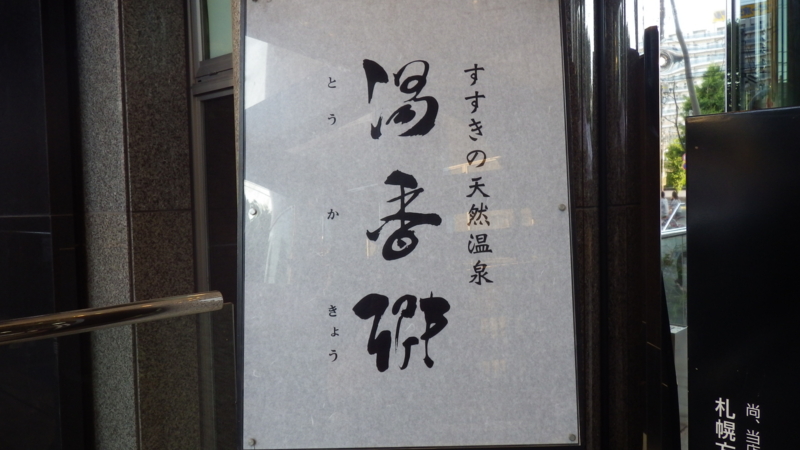 すすきの天然温泉
湯香郷
とうかきょう
尚、当店
札幌方